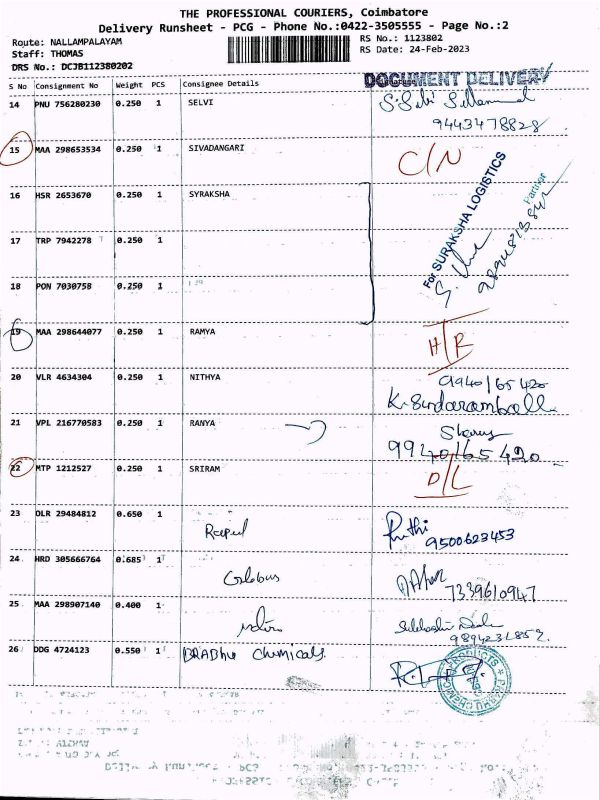 THE PROFESSIONAL COURIERS, Coimbatore
Delivery Runsheet - PCG - Phone No.:0422-3505555 - Page No.:2
Route: NALLAMPALAYAM
RS No.: 1123802
Staff: THOMAS
RS Date: 24-Feb-2023
DRS No.: DCJB112380202
S No Consignment No Weight PCS Consignee Details
DOCUMENT DELIVERY
14 PNU 756280230 0.250 1 SELVI
9443478828
15 MAA 298653534 0.250 1 SIVADANGARI C/N
16 HSR 2653670 0.250 1 SYRAKSHA
For SURAKSHA LOGISTICS
Partner
17 TRP 7942278 0.250 1
18 PON 7030758 0.250 1
19 MAA 298644077 0.250 1 RAMYA H/R
20 VLR 4634304 0.250 1 NITHYA 9940165420
21 VPL 216770583 0.250 1 RANYA
9940165420
22 MTP 1212527 0.250 1 SRIRAM D/L
23 OLR 29484812 0.650 1
9500623453
24 HRD 305666764 0.685 1
7339610947
25 MAA 298907140 0.400 1
26 DDG 4724123 0.550 1 PRABHU Chemicals